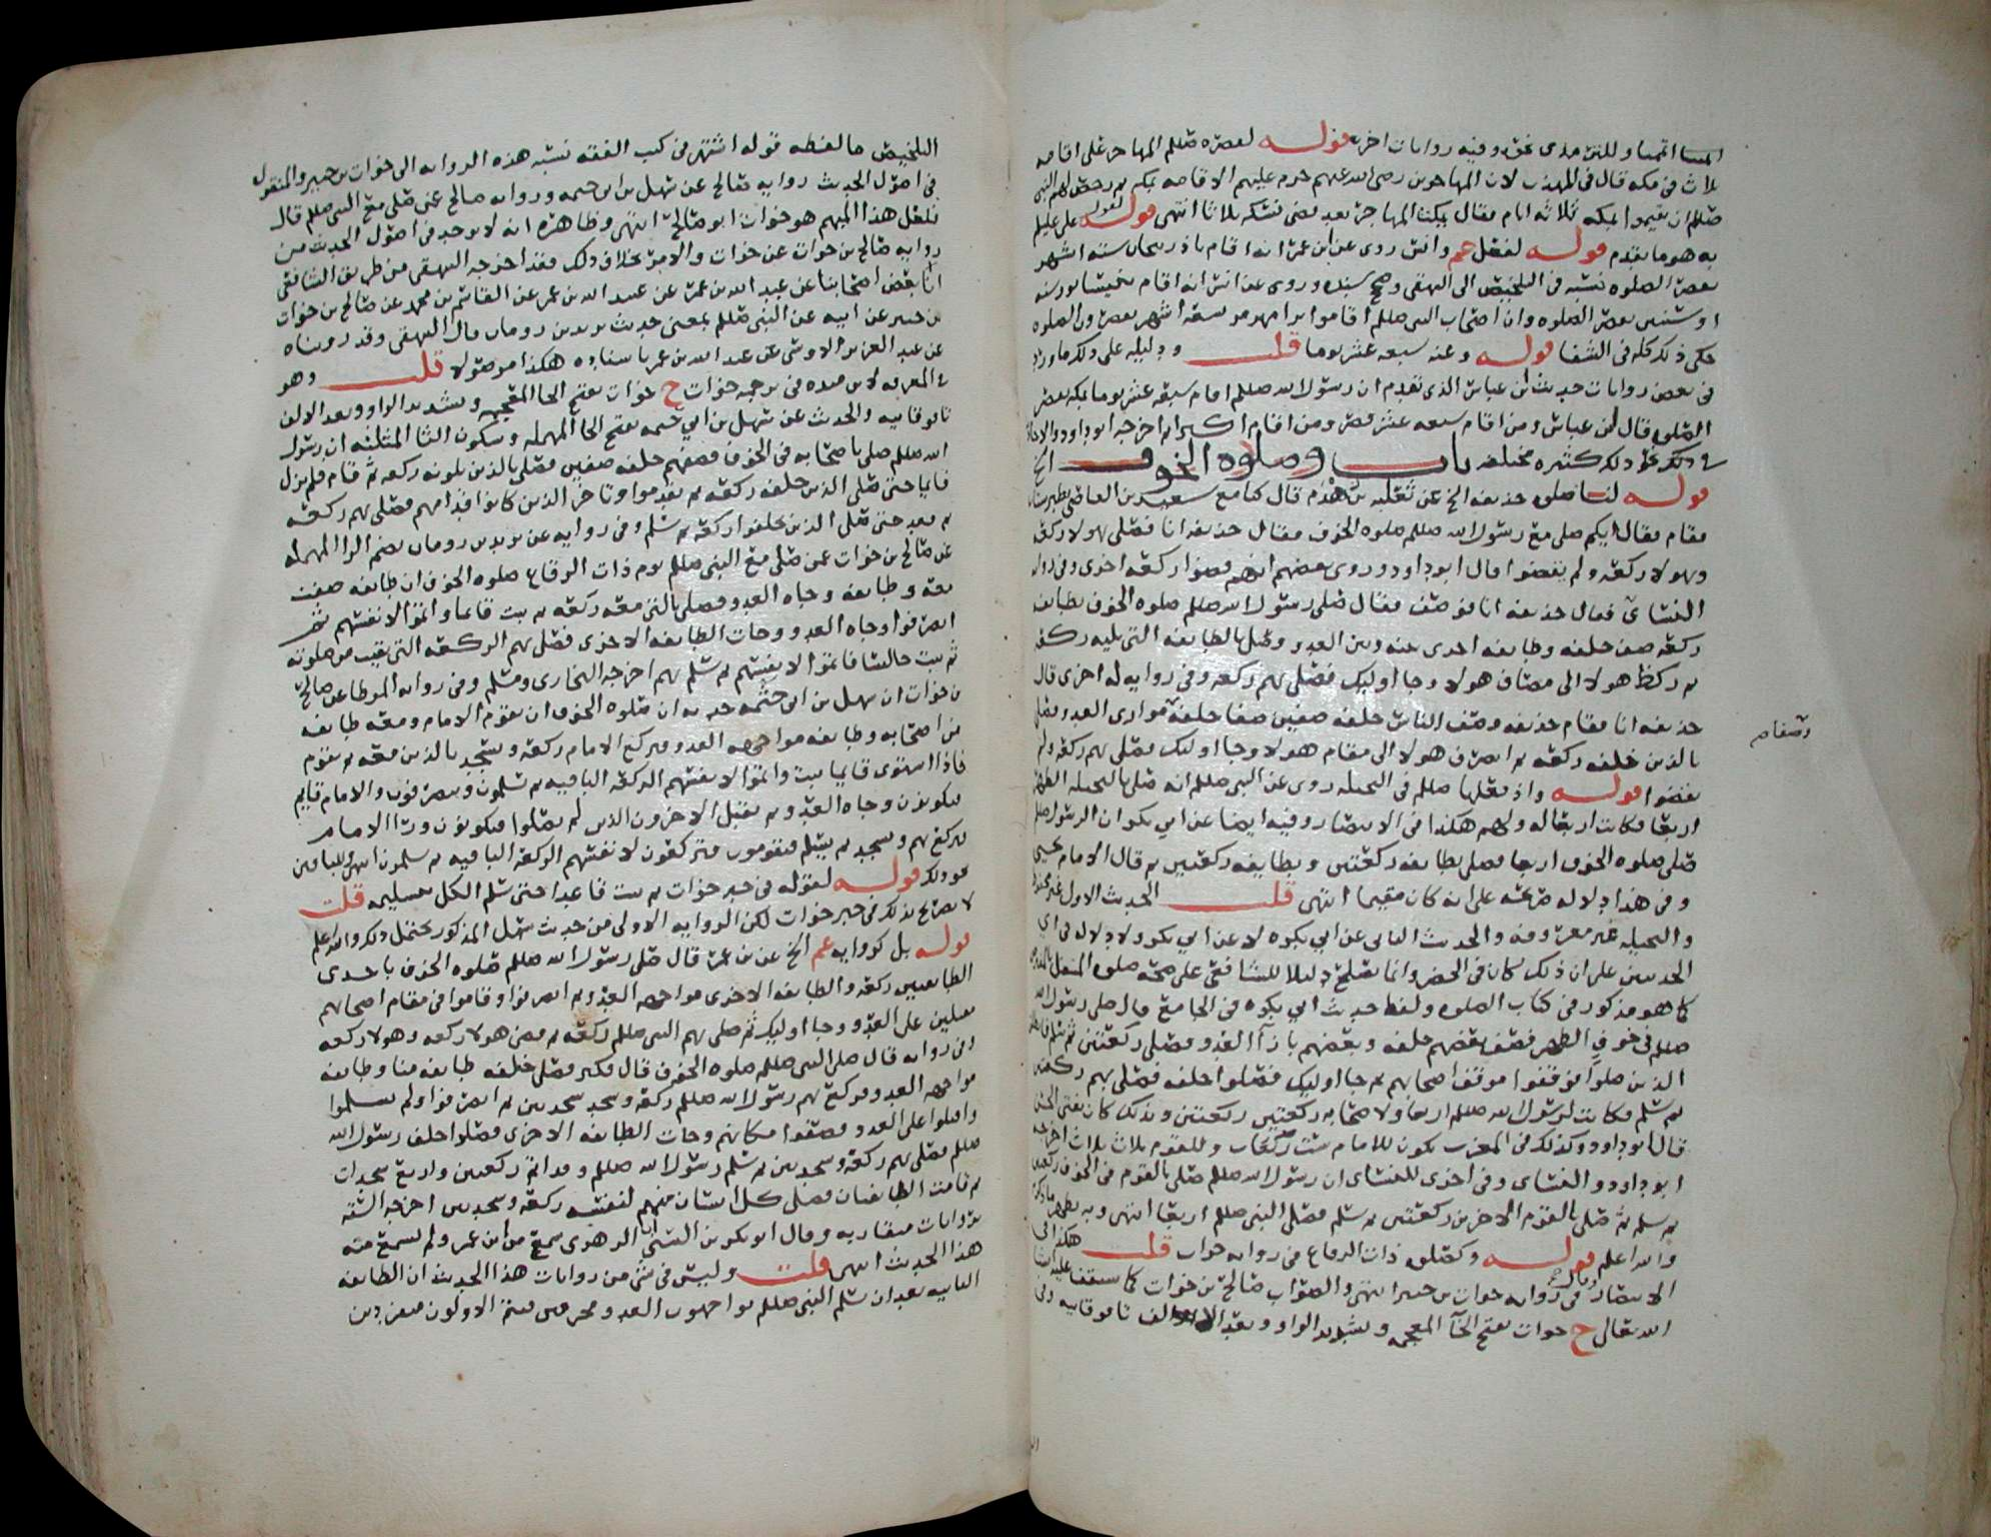 وللترمذي نحوه وفيه روايات اخر قوله لعصره صللم المهاجر على اقامه
ثلاث في مكه قال في المهذب لان المهاجرين رضي الله عنهم حرم عليهم الاقامه بمكه ثم رخص لهم النبي
صللم ان يقيموا بمكه ثلاثه ايام فقال يمكث المهاجر بعد قضى نسكه ثلاثا انتهى قوله لقول علي عليلم
به هو ما تقدم قوله لفعل عم وانس روى عن ابن عمر انه اقام باذربيجان سته اشهر
يقصر الصلوه نسبه في التلخيص الى البيهقي وصحح سنده وروى عن انس انه اقام بنيسابور سنه
او سنتين يقصر الصلوه وان اصحاب النبي صللم اقاموا برامهرمز تسعة اشهر يقصرون الصلوه
حكى ذلك كله في الشفا قوله وعنه سبعه عشر يوما قلت ودليله على ذلك ما ورد
في بعض روايات حديث ابن عباس الذي تقدم ان رسول الله صللم اقام سبعه عشر يوما بمكه يقصر
الصلوه قال ابن عباس ومن اقام سبعه عشر قصر ومن اقام اكثر اتم اخرجه ابو داود
في ذلك كثيره مختلفه باب وصلوه الخوف
قوله لنا صلوه حذيفه الخ عن ثعلبه بن هذم قال كنا مع سعيد بن العاص بطبرستان
فقام فقال ايكم صلى مع رسول الله صللم صلوه الخوف فقال حذيفه انا فصلى بهولا ركعة
وبهولا ركعة ولم يقضوا قال ابو داود وروى بعضهم انهم قضوا ركعة اخرى وفي رواية
النسائ فقال حذيفه انا فوصف فقال صلى رسول الله صللم صلوه الخوف بطايفه
ركعة صف خلفه وطايفه اخرى بينه وبين العدو وصلى بالطايفه التي تليه ركعة
ثم نكص هولا الى مصاف هولا وجا اوليك فصلى بهم ركعه وفي روايه له اخرى قال
حذيفه انا فقام حذيفه وصف الناس خلفه صفين صفا خلفه وصفا موازي العدو فصلى
بالذين خلفه ركعة ثم انصرف هولا الى مقام هولا وجا اوليك فصلى بهم ركعة ولم
يقضوا قوله واذ فعلها صللم في النخيله روى عن النبي صللم انه صلى بالنخيله الظهر
اربعا فكانت اربعا له ولهم هكذا في الانتصار وفيه ايضا عن ابي بكر ان الرسول صلم
صلى صلوه الخوف اربعا فصلى بطايفه ركعتين وبطايفه ركعتين ثم قال الامام يحيى
وفي هذا دلاله صريحه على انه كان مقيما انتهى قلت الحديث الاول غير محفوظ
والنخيله غير معروفه والحديث الثاني عن ابي بكره لا عن ابي بكر ولا دلاله في اي
الحديثين على ان ذلك كان في الحضر وانما يصلح دليلا للشافعي على صحه صلوه المتنفل
كما هو مذكور في كتاب الصلوه ولفظ حديث ابي بكره في الجامع قال صلى رسول الله
صللم في خوف الظهر فصف بعضهم خلفه وبعضهم بازآ العدو فصلى ركعتين ثم سلم فانطلق
الذين صلوا فوقفوا موقف اصحابهم ثم جا اوليك فصلوا خلفه فصلى بهم ركعتين
ثم سلم فكانت لرسول الله صللم اربعا ولاصحابه ركعتين ركعتين وبذلك كان يفتي الحسن
قال ابو داود وكذلك في المغرب يكون للامام ست ركعات وللقوم ثلاث ثلاث اخرجه
ابو داود والنسائ وفي اخرى للنسائ ان رسول الله صللم صلى بالقوم في الخوف ركعتين
ثم سلم ثم صلى بالقوم الاخرين ركعتين ثم سلم فصلى النبي صللم اربعا انتهى وبه يظهر ما ذكرنا
والله اعلم قوله وكصلوه ذات الرقاع في روايه خوات قلت هكذا في
الانتصار في روايه خوات بن جبير انتهى والصواب صالح بن خوات كما ستقف عليه انشا
الله تعالى ح خوات بفتح الخآ المعجمه وتشديد الواو وبعد الالف تا فوقانيه وفي
وصفا م
التلخيص ما لفظه قوله اشتهر في كتب الفقه نسبه هذه الروايه الى خوات بن جبير والمنقول
في اصول الحديث روايه صالح عن سهل بن ابي حثمه وروايه صالح عن من صلى مع النبي صللم قال
فلعل هذا المبهم هو خوات ابو صالح انتهى وظاهره انه لا يوجد في اصول الحديث من
روايه صالح بن خوات عن خوات والامر بخلاف ذلك فقد اخرجه البيهقي من طريق الشافعي
انا بعض اصحابنا عن عبد الله بن عمر عن عبيد الله بن عمر عن القاسم بن محمد عن صالح بن خوات
بن جبير عن ابيه عن النبي صللم بمعنى حديث يزيد بن رومان قال البيهقي وقد رويناه
عن عبد العزيز الاويسي عن عبد الله بن عمر باسناده هكذا موصولا قلت وهو
في المعرفه لابن منده في ترجمه خوات ح خوات بفتح الخا المعجمه وتشديد الواو وبعد الالف
تا فوقانيه والحديث عن سهل بن ابي حثمه بفتح الحا المهمله وسكون الثا المثلثه ان رسول
الله صللم صلى باصحابه في الخوف فصفهم خلفه صفين فصلى بالذين يلونه ركعه ثم قام فلم يزل
قايما حتى صلى الذين خلفه ركعة ثم تقدموا وتاخر الذين كانوا قدامهم فصلى بهم ركعة
ثم قعد حتى صلى الذين تخلفوا ركعة ثم سلم وفي روايه عن يزيد بن رومان بضم الرا المهمله
عن صالح بن خوات عمن صلى مع النبي صللم يوم ذات الرقاع صلوه الخوف ان طايفه صفت
معه وطايفه وجاه العدو فصلى بالتي معه ركعة ثم ثبت قايما واتموا لانفسهم ثم
انصرفوا وجاه العدو وجات الطايفه الاخرى فصلى بهم الركعة التي بقيت من صلوته
ثم ثبت جالسا فاتموا لانفسهم ثم سلم بهم اخرجه البخاري ومسلم وفي روايه الموطا عن صالح
بن خوات ان سهل بن ابي حثمه حدثه ان صلوه الخوف ان يقوم الامام ومعه طايفه
من اصحابه وطايفه مواجهه العدو فيركع الامام ركعة ويسجد بالذين معه ثم يقوم
فاذا استوى قايما ثبت واتموا لانفسهم الركعة الباقيه ثم يسلمون وينصرفون والامام قايم
فيكونون وجاه العدو ثم يقبل الاخرون الذين لم يصلوا فيكونون ورآ الامام
فيركع بهم ويسجد ثم يسلم فيقومون فيركعون لانفسهم الركعة الباقيه ثم يسلمون انتهى وللباقين
نحو ذلك قوله لقوله في خبر خوات ثم ثبت قاعدا حتى سلم الكل بتسليمه قلت
لا تصريح بذلك في خبر خوات لكن الروايه الاولى من حديث سهل المذكور يحتمل ذلك والله اعلم
قوله بل كروايه عم الخ عن بن عمر قال صلى رسول الله صللم صلوه الخوف باحدى
الطايفتين ركعة والطايفه الاخرى مواجهه العدو ثم انصرفوا وقاموا في مقام اصحابهم
مقبلين على العدو وجا اوليك ثم صلى بهم النبي صللم ركعة ثم قضى هولا ركعه وهولا ركعه
وفي روايه قال صلى النبي صللم صلوه الخوف قال فكبر فصلى خلفه طايفه منا وطايفه
مواجهه العدو فركع بهم رسول الله صللم ركعة وسجد سجدتين ثم انصرفوا ولم يسلموا
واقبلوا على العدو فصفوا مكانهم وجات الطايفه الاخرى فصلوا خلف رسول الله
صللم فصلى بهم ركعة وسجدتين ثم سلم رسول الله صللم وقد اتم ركعتين واربع سجدات
ثم قامت الطايفتان فصلى كل انسان منهم لنفسه ركعة وسجدتين اخرجه الستة
بروايات متقاربه وقال ابو بكر بن السني الزهري سمع من ابن عمر ولم يسمع منه
هذا الحديث انتهى قلت وليس في شئ من روايات هذا الحديث ان الطايفه
الثانيه بعد ان سلم النبي صللم تواجهون العدو ومن الاولون منفردين